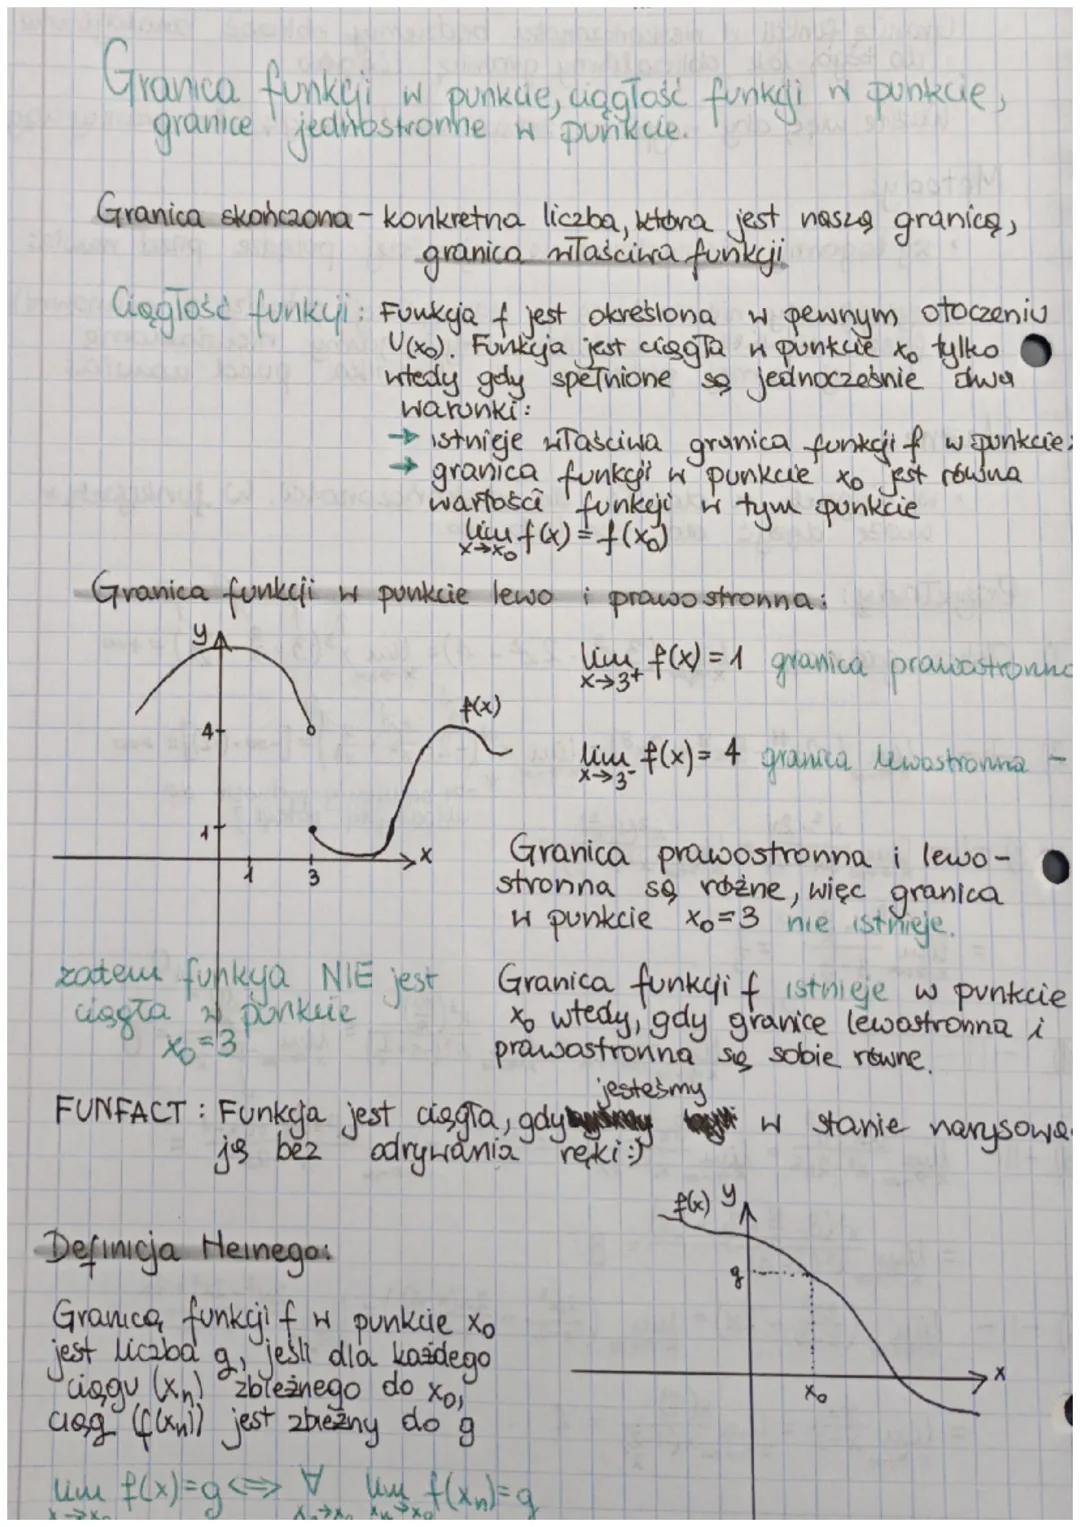 Granica funkcji w punkcie, ciągłość funkcji w punkcie,
granice jednostronne w punkcie.
Granica skończona - konkretna liczba, która jest naszą granicą,
granica właściwa funkcji
Ciągłość funkcji: Funkcja f jest określona w pewnym otoczeniu
U(x₀). Funkcja jest ciągła w punkcie x₀ tylko
wtedy gdy spełnione są jednocześnie dwa
warunki:
→ istnieje właściwa granica funkcji f w punkcie
→ granica funkcji w punkcie x₀ jest równa
wartości funkcji w tym punkcie
lim f(x) = f(x₀)
x→x₀
Granica funkcji w punkcie lewo i prawostronna:
y
4
1
1
3
x
f(x)
lim f(x) = 1 granica prawostronna
x→3⁺
lim f(x) = 4 granica lewostronna -
x→3⁻
Granica prawostronna i lewo-
stronna są różne, więc granica
w punkcie x₀=3 nie istnieje.
zatem funkcja NIE jest
ciągła w punkcie
x₀=3
Granica funkcji f istnieje w punkcie
x₀ wtedy, gdy granice lewostronna i
prawostronna są sobie równe.
jesteśmy
FUNFACT: Funkcja jest ciągła, gdy w stanie narysowa
ją bez odrywania ręki :)
f(x) y
g
x₀
x
Definicja Heinego:
Granicą funkcji f w punkcie x₀
jest liczba g, jeśli dla każdego
ciągu (xₙ) zbieżnego do x₀,
ciąg (f(xₙ)) jest zbieżny do g
lim f(x)=g ⟺ ∀ lim f(xₙ)=g
x→x₀ xₙ→x₀ xₙ→x₀